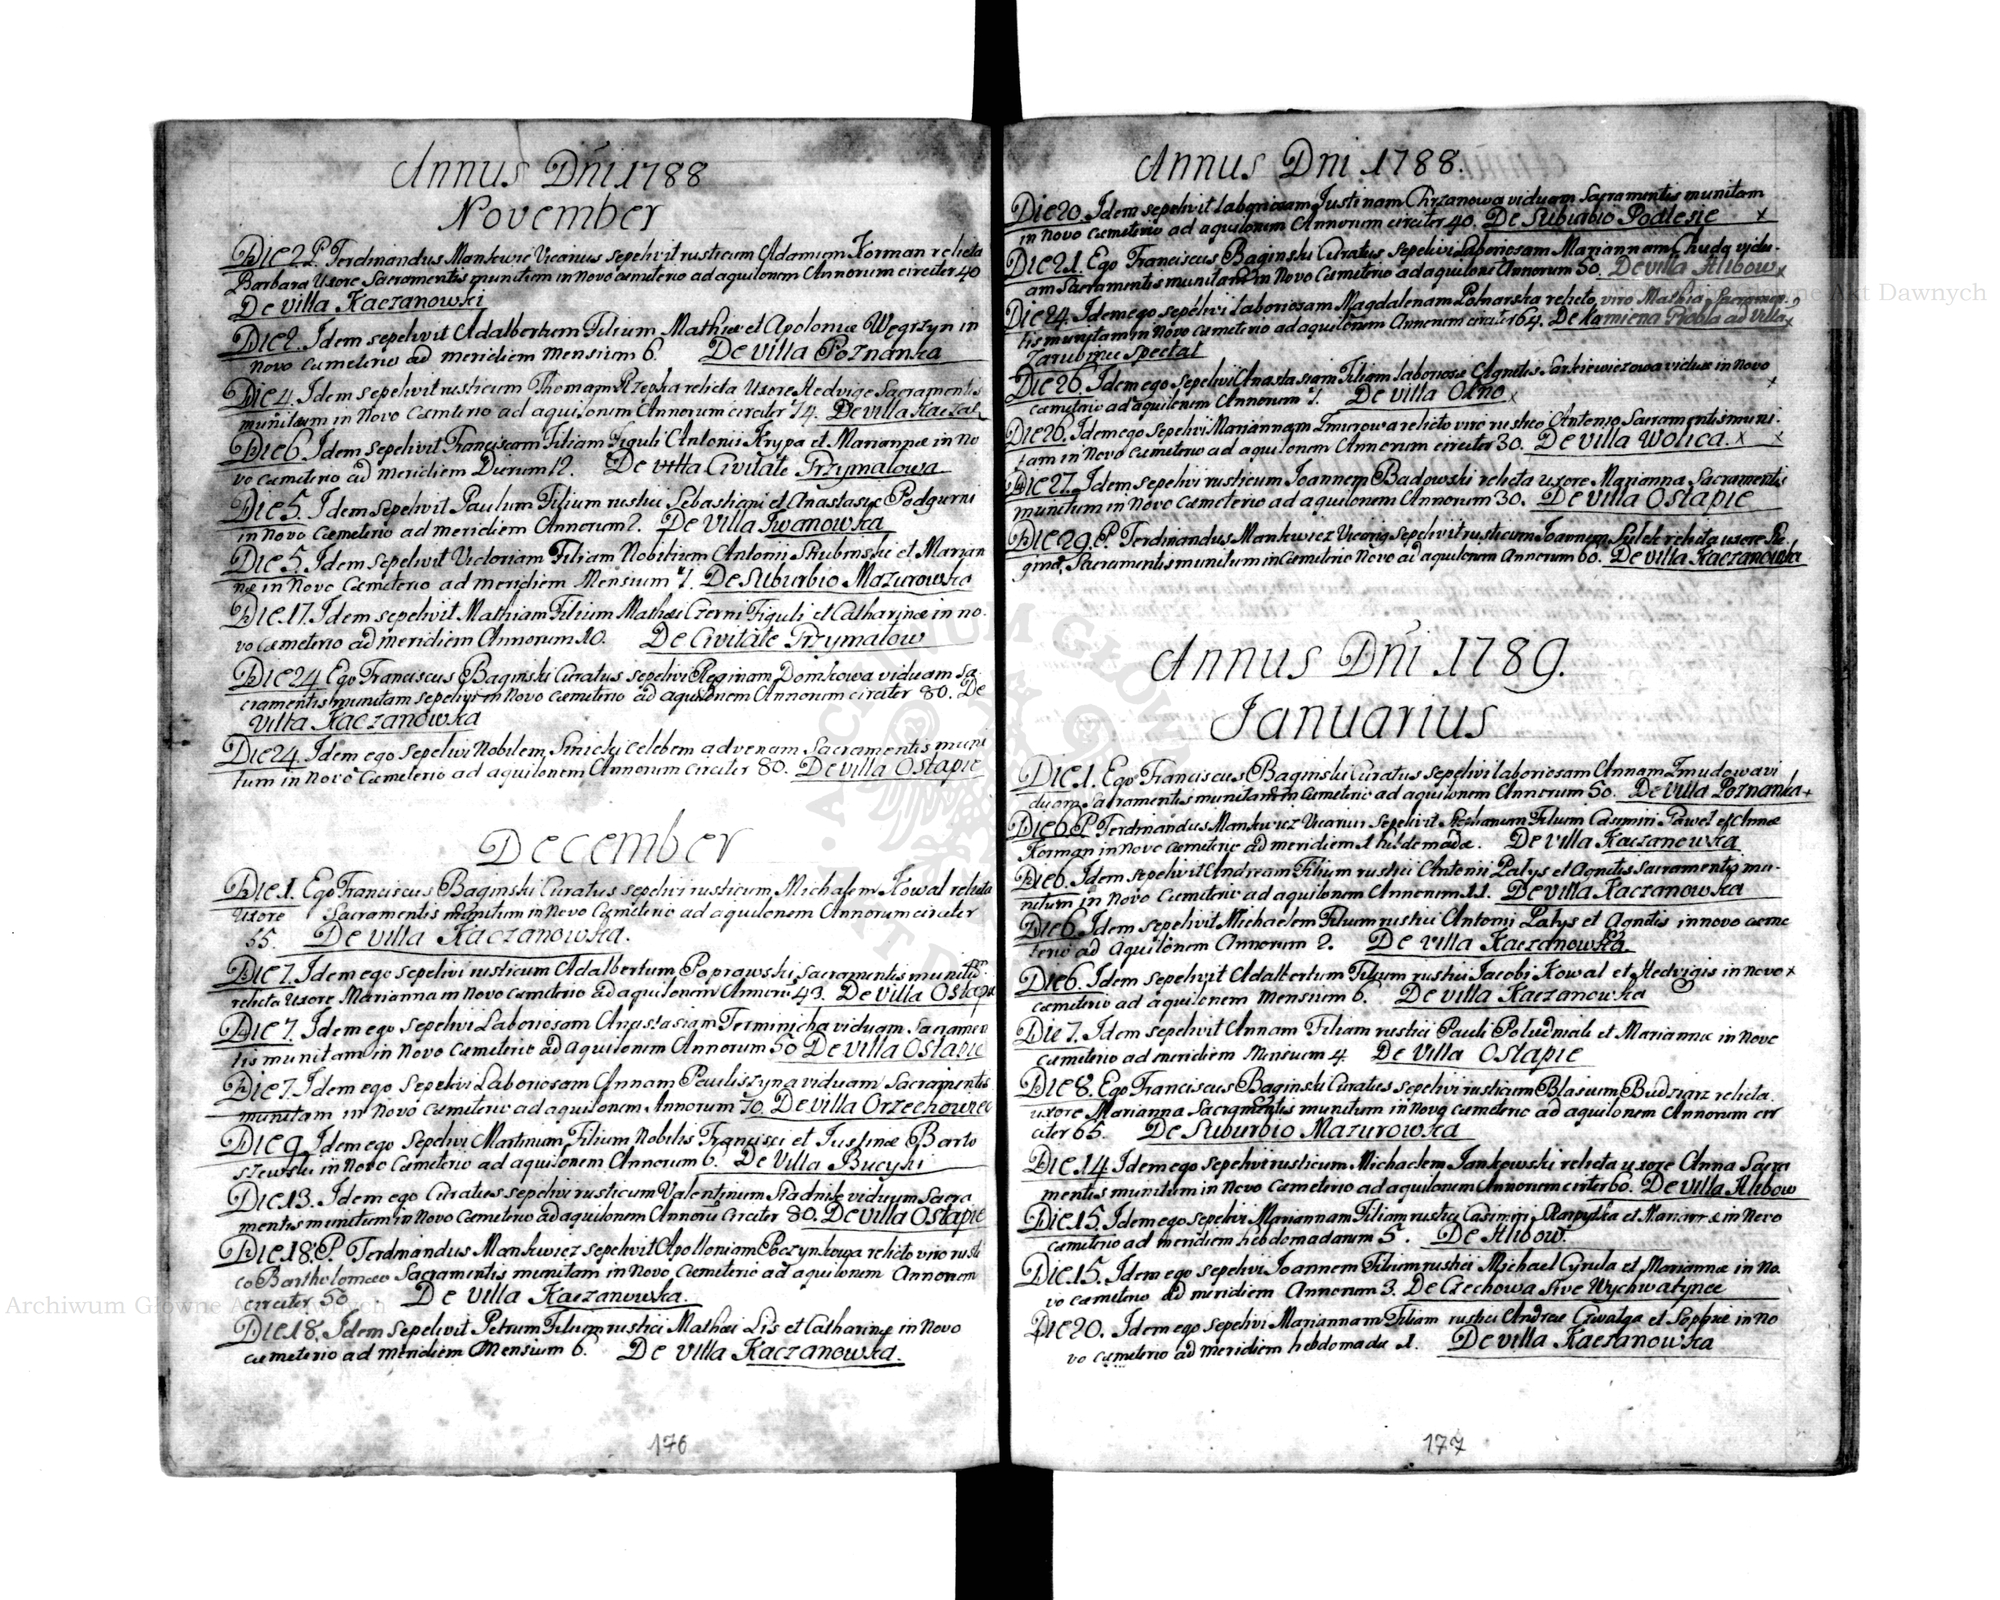 Annus Dñi 1788
November
Die 2. P. Ferdinandus Mankwic Vicarius sepelivit rusticum Adamum Korman relicta
Barbara Uxore Sacramentis munitum in novo cæmeterio ad aquilonem Annorum circiter 40
De villa Kaczanowski
Die 2. Idem sepelivit Adalbertum Filium Mathiæ et Apoloniæ Węgrzyn in
novo cæmeterio ad meridiem Mensium 6. De villa Poznanka
Die 4. Idem sepelivit rusticum Thomam Rzepka relicta Uxore Hedvige Sacramentis
munitum in Novo Cæmterio ad aquilonem Annorum circiter 74. De villa Kaczan
Die 6. Idem sepelivit Franciscam Filiam Figuli Antonii Krypa et Mariannæ in no
vo cæmeterio ad meridiem Dierum 12. De villa Civitate Grzymalowa
Die 5. Idem sepelivit Paulum Filium rustici Sebastiani et Anastasiæ Podgurni
in Novo Cæmeterio ad meridiem Annorum 2. De villa Iwanowska
Die 5. Idem sepelivit Victoriam Filiam Nobilium Antonii Skubinski et Marian
næ in Novo Cæmeterio ad meridiem Mensium 7. De Suburbio Mazurowska
Die 17. Idem sepelivit Mathiam Filium Mathæi Czerni Figuli et Catharinæ in no-
vo cæmeterio ad meridiem Annorum 10. De Civitate Grzymalow
Die 24 Ego Franciscus Baginski Curatus sepelivi Reginam Domkowa viduam Sa-
cramentis munitam sepelivi in Novo Cæmeterio ad aquilonem Annorum circiter 80. De
villa Kaczanowska
Die 24. Idem ego sepelivi Nobilem Smicki celebem advenam Sacramentis muni
tum in Novo Cæmeterio ad aquilonem Annorum circiter 80. De villa Ostapie
December
Die 1. Ego Franciscus Baginski Curatus sepelivi rusticum Michalem Kowal relicta
Uxore Sacramentis munitum in Novo Cæmeterio ad aquilonem Annorum circiter
55. De villa Kaczanowska.
Die 7. Idem ego sepelivi rusticum Adalbertum Poprawski Sacramentis munitum
relicta Uxore Marianna in Novo Cæmeterio ad aquilonem Annorũ 43. De villa Ostapie
Die 7. Idem ego sepelivi Laboriosam Anastasiam Terminicha viduam Sacramen
tis munitam in Novo Cæmeterio ad aquilonem Annorum 50 De villa Ostapie
Die 7. Idem ego sepelivi Laboriosam Annam Pauliszyna viduam Sacramentis
munitam in Novo Cæmeterio ad aquilonem Annorum 70. De villa Orzechowiec
Die 9. Idem ego sepelivi Martinum Filium Nobilis Francisci et Justinæ Barto
szewski in Novo Cæmeterio ad aquilonem Annorum 6. De Villa Bucyki
Die 13. Idem ego Curatus sepelivi rusticum Valentinum Stadnik viduum Sacra
mentis munitum in Novo Cæmeterio ad aquilonem Annorũ Circiter 80. De villa Ostapie
Die 18. P. Ferdinandus Mankwicz sepelivit Apolloniam Poczynkowa relicto viro rusti
co Bartholomæo Sacramentis munitam in Novo Cæmeterio ad aquilonem Annorum
circiter 50. De villa Kaczanowska.
Die 18. Idem sepelivit Petrum Filium rustici Mathæi Lis et Catharinæ in Novo
cæmeterio ad meridiem Mensium 6. De villa Kaczanowska.
176
Annus Dni 1788.
Die 20. Idem sepelivit laboriosam Justinam Chrzanowa viduam Sacramentis munitam
in novo Cæmeterio ad aquilonem Annorum circiter 40. De Suburbio Podlesie x
Die 21. Ego Franciscus Baginski Curatus sepelivi Laboriosam Mariannam Chuda vidu-
am Sacramentis munitam in Novo Cæmeterio ad aquilonẽ Annorum 50. De villa Hlibow x
Die 24. Idem ego sepelivi laboriosam Magdalenam relicto viro Mathia Sacramen-
tis munitam in Novo Cæmeterio ad aquilonem Annorum circiter 64. De Kamiena ad villa x
Zarubince Spectat
Die 26. Idem ego sepelivi Anastasiam Filiam laboriosæ Agnetis Sarkiewiczowa viduæ in Novo
cæmeterio ad aquilonem Annorum 7. De villa Okno x
Die 26. Idem ego sepelivi Mariannam Zmurowa relicto viro rustico Antonio Sacramentis muni-
tam in Novo Cæmeterio ad aquilonem Annorum circiter 30. De villa Wolica. x x
Die 27. Idem sepelivi rusticum Joannem Badowski relicta uxore Marianna Sacramentis
munitum in Novo Cæmeterio ad aquilonem Annorum 30. De villa Ostapie
Die 29. P. Ferdinandus Mankwicz Vicarius sepelivit rusticum Joannem relicta uxore Re-
gina, Sacramentis munitum in Cæmeterio Novo ad aquilonem Annorum 60. De villa Kaczanowska
Annus Dñi 1789.
Januarius
Die 1. Ego Franciscus Baginski Curatus sepelivi laboriosam Annam Zmudowa vi
duam Sacramentis munitam in Cæmeterio ad aquilonem Annorum 50. De villa Poznanka +
Die 6. P. Ferdinandus Mankwicz Vicarius sepelivit Stephanum Filium Casimiri Pawel et Annæ
Korman in Novo Cæmeterio ad meridiem 1 hebdomadæ. De villa Kaczanowska
Die 6. Idem sepelivit Andream Filium rustici Antonii Palys et Agnetis Sacramentis mu-
nitum in Novo Cæmeterio ad aquilonem Annorum 11. De villa Kaczanowska
Die 6. Idem sepelivit Michaelem Filium rustici Antonii Palys et Agnetis in novo cæme
terio ad aquilonem Annorum 2. De villa Kaczanowska
Die 6. Idem sepelivit Adalbertum Filium rustici Jacobi Kowal et Hedvigis in novo x
cæmeterio ad aquilonem Mensium 6. De villa Kaczanowska
Die 7. Idem sepelivit Annam Filiam rustici Pauli Poludniak et Mariannæ in Novo
cæmeterio ad meridiem Mensium 4 De villa Ostapie
Die 8. Ego Franciscus Baginski Curatus sepelivi rusticum Blasium Budzianz relicta
uxore Marianna Sacramentis munitum in Novo cæmeterio ad aquilonem Annorum cir
citer 65. De Suburbio Mazurowska
Die 14 Idem ego sepelivi rusticum Michaelem Jankowski relicta uxore Anna Sacra
mentis munitum in Novo Cæmeterio ad aquilonem Annorum circiter 60. De villa Hlibow
Die 15. Idem ego sepelivi Mariannam Filiam rustici Casimiri Karpytka et Mariannæ in Novo
cæmeterio ad meridiem hebdomadarum 5. De Hlibow.
Die 15. Idem ego sepelivi Joannem Filium rustici Michael Cyrula et Mariannæ in No
vo cæmeterio ad meridiem Annorum 3. De Czechowa sive Wychwatynce
Die 20. Idem ego sepelivi Mariannam Filiam rustici Andreæ Gwalga et Sophiæ in No
vo cæmeterio ad meridiem hebdomadæ 1. De villa Kaczanowska
177
Archiwum Główne Akt Dawnych